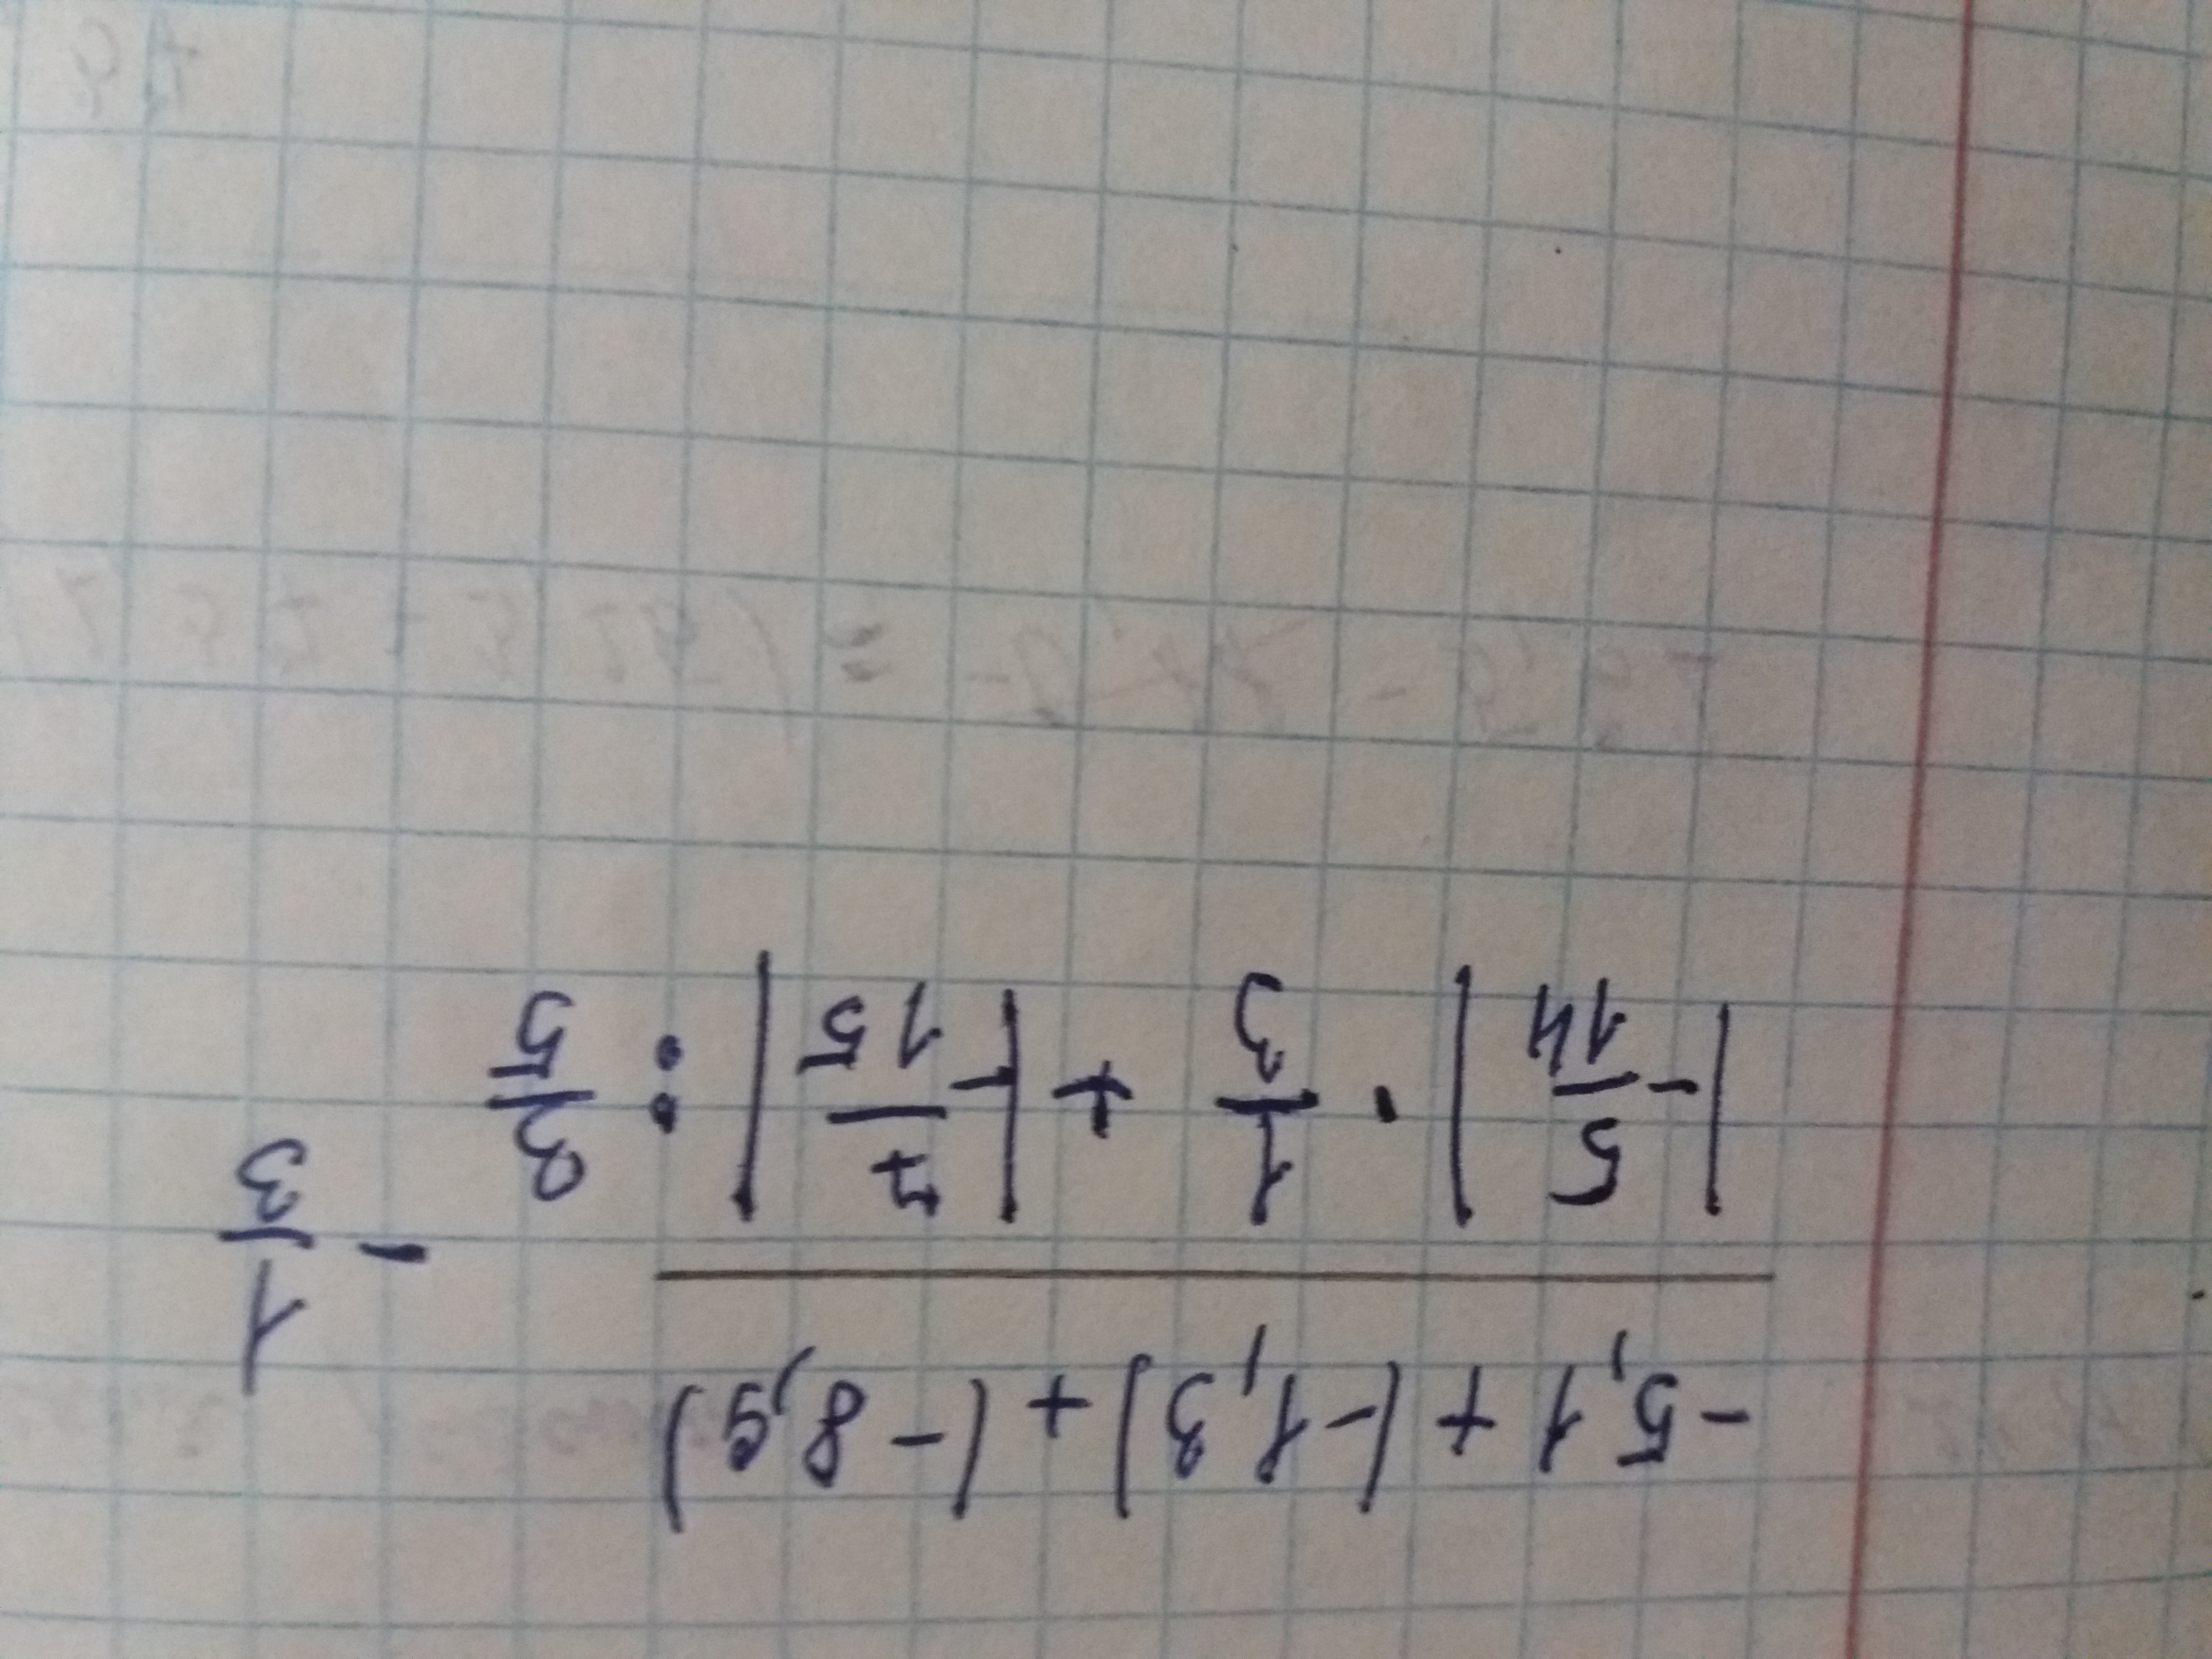 -5,1 + (-1,3) + (-8,9)
|-5/14| · 1/3 + |-7/15| : 3/5 - 1/3